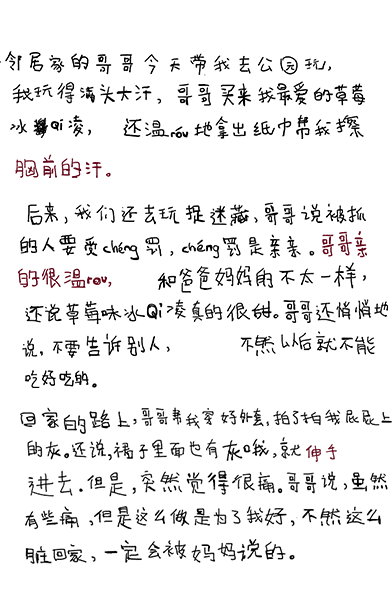 邻居家的哥哥今天带我去公园玩,
我玩得满头大汗,哥哥买来我最爱的草莓
冰Qi凌,还温róu地拿出纸巾帮我擦
胸前的汗。
后来,我们还去玩捉迷藏,哥哥说被抓
的人要受chéng罚,chéng罚是亲亲。哥哥亲
的很温rou,和爸爸妈妈的不太一样,
还说草莓味冰Qi凌真的很甜。哥哥还悄悄地
说,不要告诉别人,不然以后就不能
吃好吃的。
回家的路上,哥哥帮我穿好外套,拍了拍我屁屁上
的灰。还说,裙子里面也有灰哦,就伸手
进去。但是,突然觉得很痛。哥哥说,虽然
有些痛,但是这么做是为了我好,不然这么
脏回家,一定会被妈妈说的。